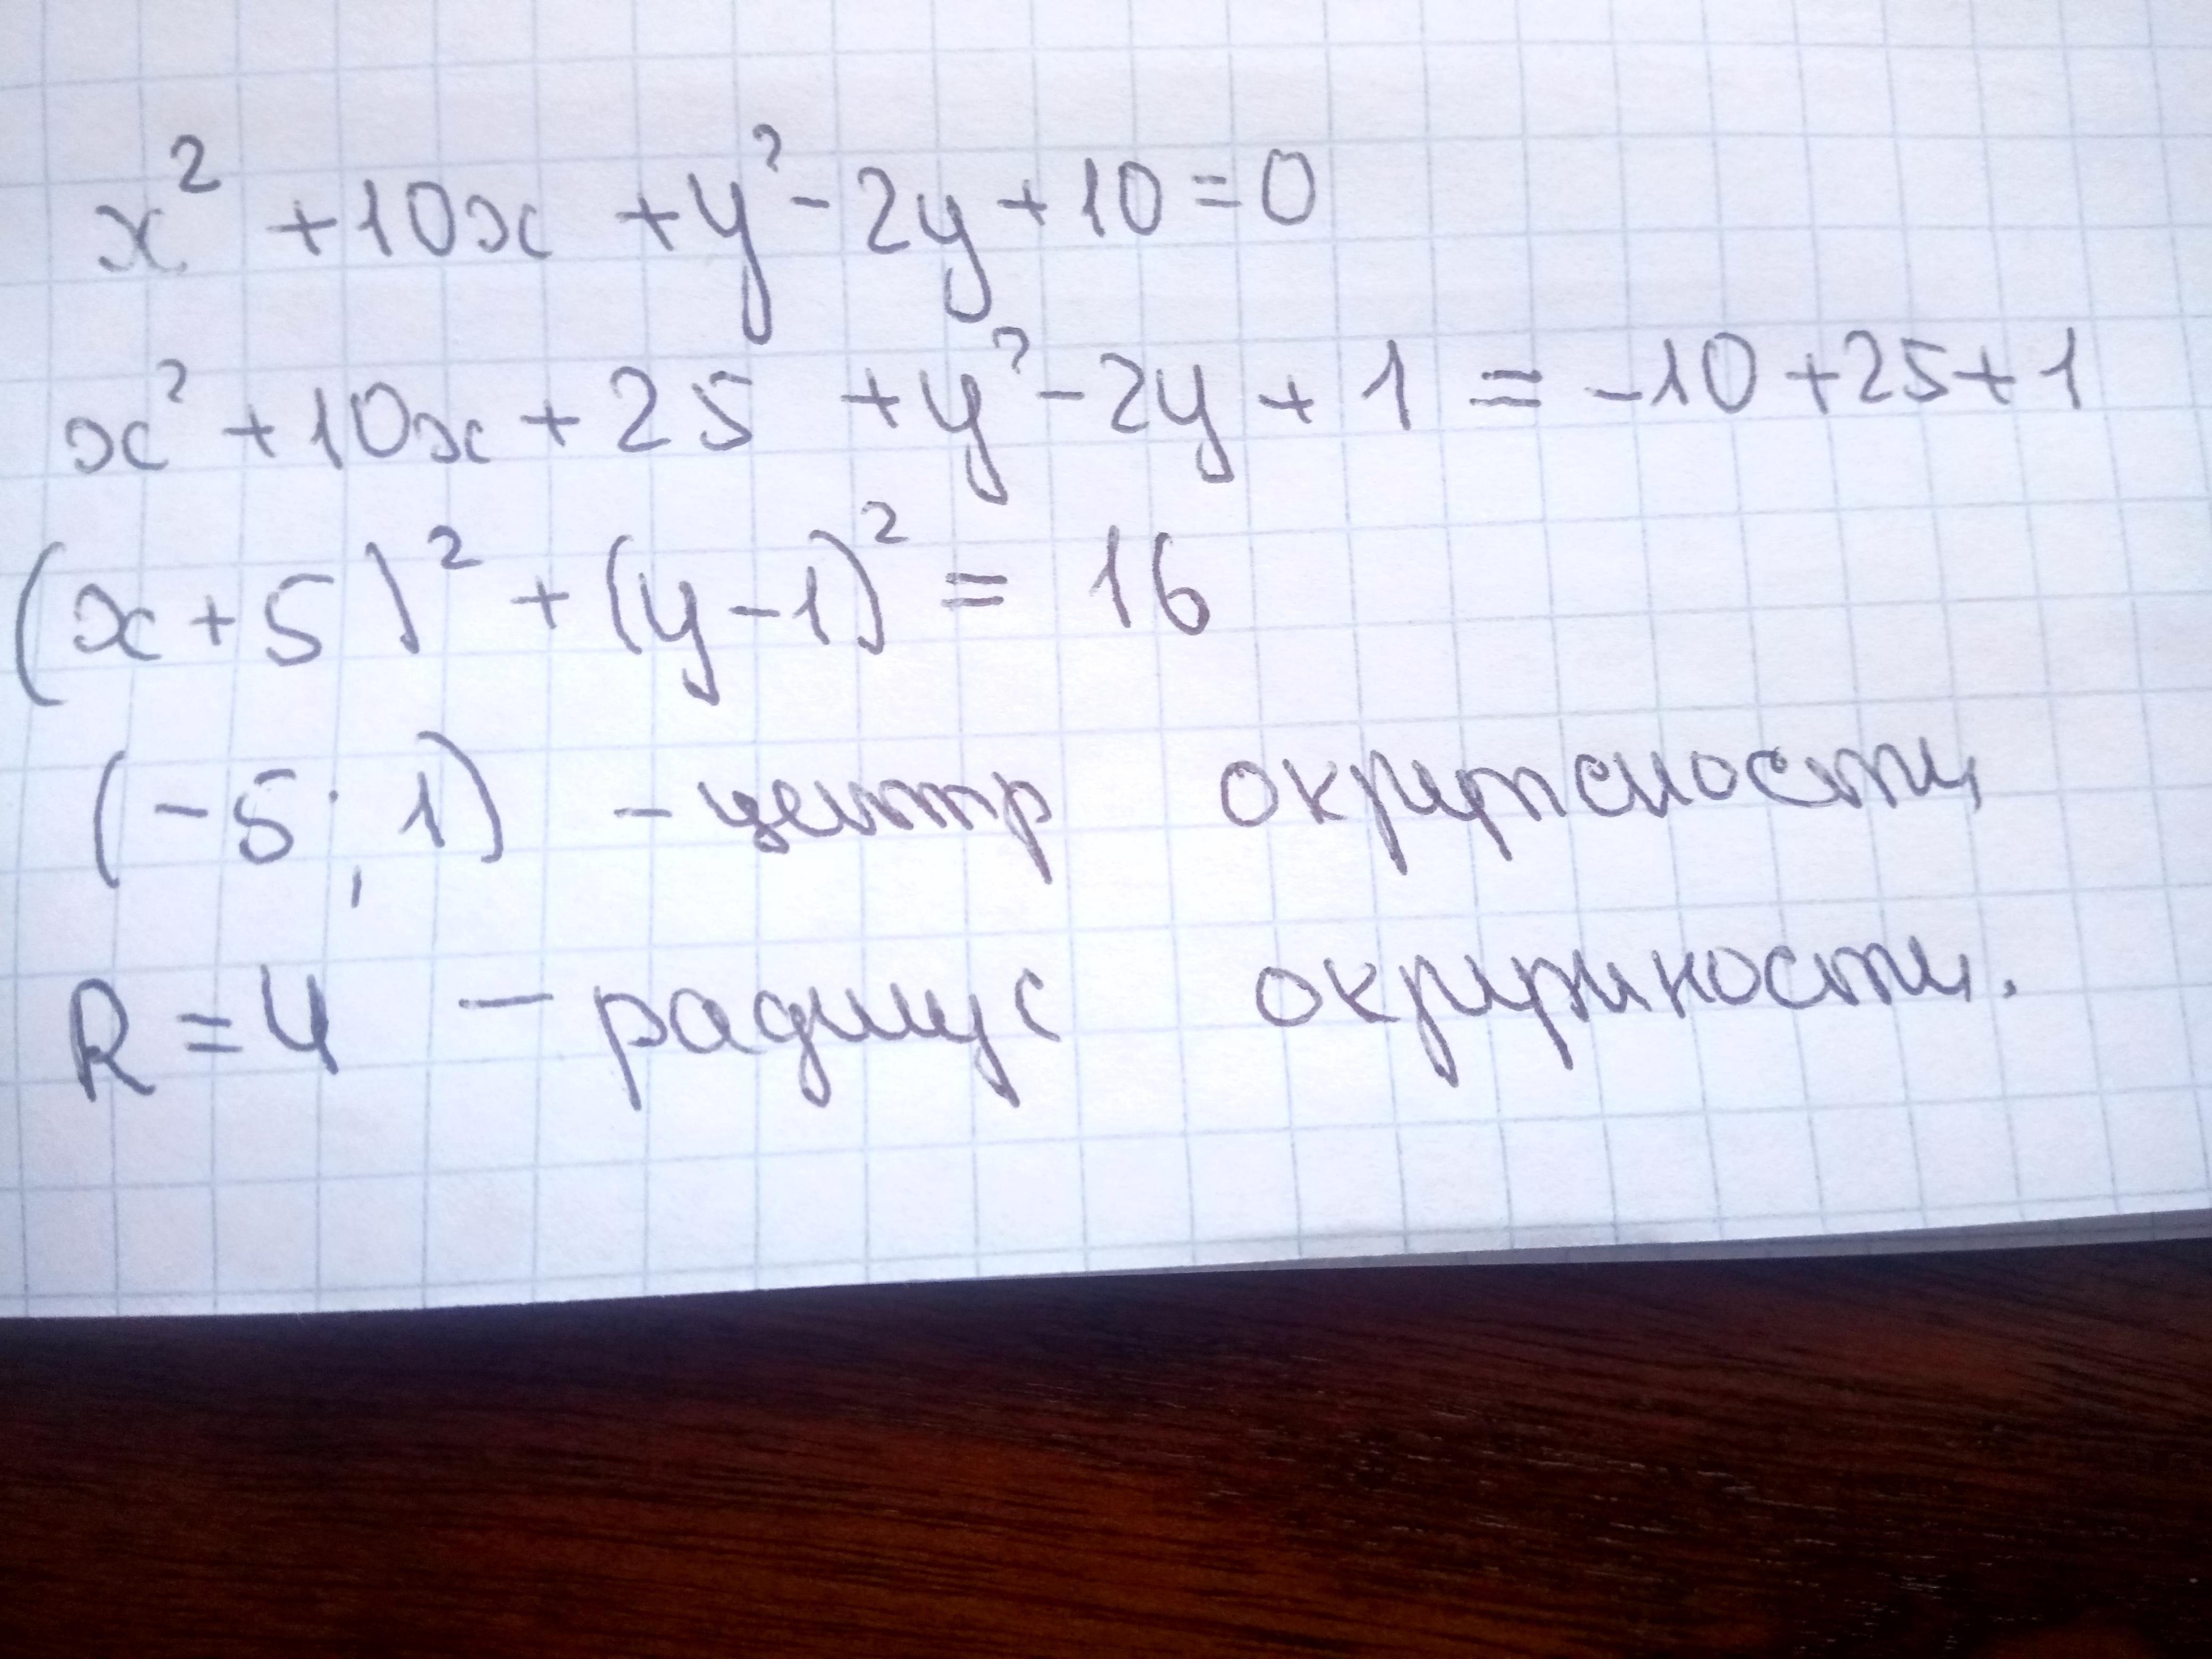 x² + 10x + y² - 2y + 10 = 0
x² + 10x + 25 + y² - 2y + 1 = -10 + 25 + 1
(x + 5)² + (y - 1)² = 16
(-5; 1) - центр окружности
R = 4 — радиус окружности.